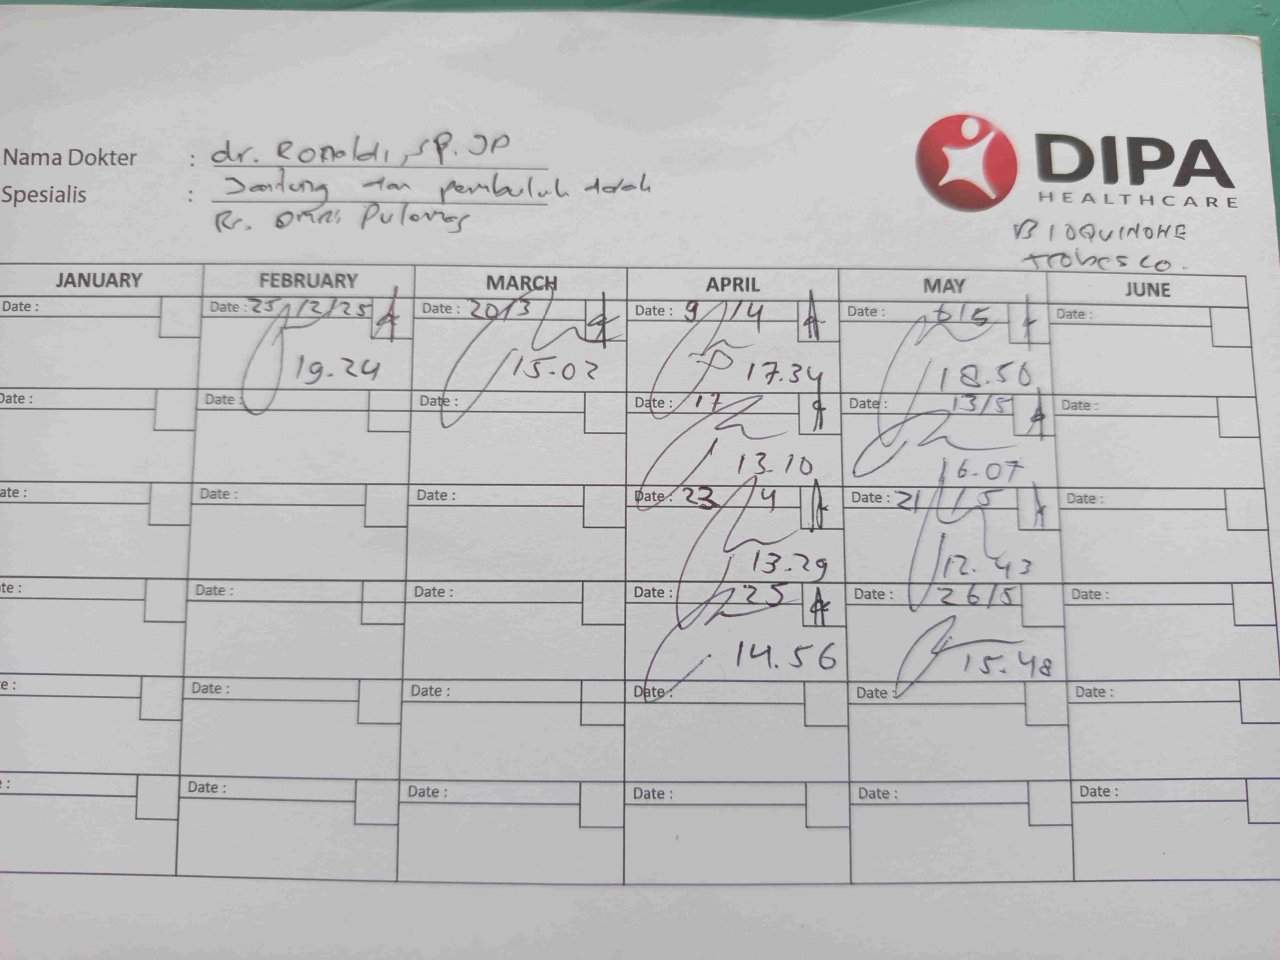 Nama Dokter : dr. Ronaldi, SP. JP
Spesialis : Jantung dan pembuluh darah
Rs. OMNI Pulomas
DIPA
HEALTHCARE
BIOQUINONE
JANUARY FEBRUARY MARCH APRIL MAY JUNE
Date : Date : 25/2/25 Date : 20/3 Date : 9/4 Date : 6/5 Date :
19.24 15.02 17.34 18.50
Date : Date : Date : Date : 17 Date : 13/5 Date :
13.10 16.07
ate : Date : Date : Date : 23/4 Date : 21/5 Date :
13.29 12.43
te : Date : Date : Date : 25 Date : 26/5 Date :
14.56 15.48
e : Date : Date : Date : Date : Date :
: Date : Date : Date : Date : Date :